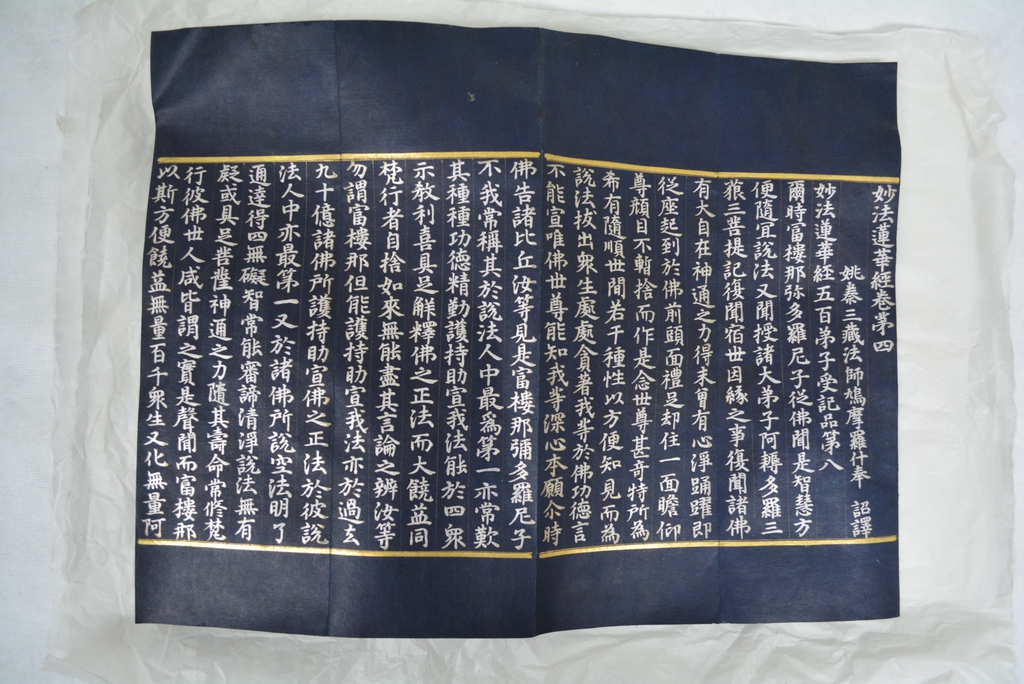 妙法蓮華經卷苐四
姚秦三藏法師鳩摩羅什奉 詔譯
妙法蓮華經五百弟子受記品第八
爾時富樓那弥多羅尼子從佛聞是智慧方
便隨宜說法又聞授諸大弟子阿耨多羅三
藐三菩提記復聞宿世因緣之事復聞諸佛
有大自在神通之力得未曾有心淨踊躍即
從座起到於佛前頭面禮足却住一面瞻仰
尊顏目不暫捨而作是念世尊甚奇特所為
希有隨順世閒若干種性以方便知見而為
說法拔出衆生處處貪著我等於佛功德言
不能宣唯佛世尊能知我等深心本願尒時
佛告諸比丘汝等見是富樓那彌多羅尼子
不我常稱其於說法人中最爲第一亦常歎
其種種功德精勤護持助宣我法能於四衆
示教利喜具足解釋佛之正法而大饒益同
梵行者自捨如來無能盡其言論之辨汝等
勿謂富樓那但能護持助宣我法亦於過去
九十億諸佛所護持助宣佛之正法於彼說
法人中亦最第一又於諸佛所說空法明了
通達得四無礙智常能審諦清淨說法無有
疑或具足菩薩神通之力隨其壽命常修梵
行彼佛世人咸皆謂之實是聲聞而富樓那
以斯方便饒益無量百千衆生又化無量阿